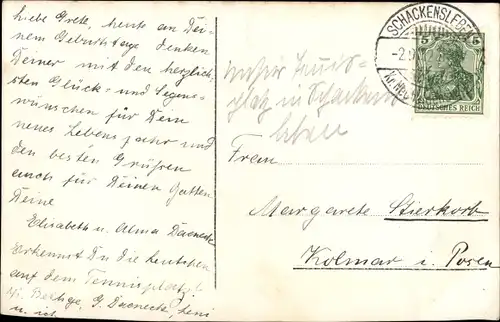 Liebe Grete, heute an Dei-
nem Geburtstage denken
Deiner mit den herzlich-
sten Glück- und Segens-
wünschen für Dein
neues Lebensjahr und
den besten Grüßen
auch für Deinen Gatten
Deine
Elisabeth u. Alma Daenecke
Erkennst Du die Leutchen
auf dem Tennisplatz?
G. Daenecke, Leni
u. ich
unser Tennis-
platz in Schackens
leben
SCHACKENSLEBEN
5
DEUTSCHES REICH
Frau
Margarete Stierkorb
Kolmar i. Posen